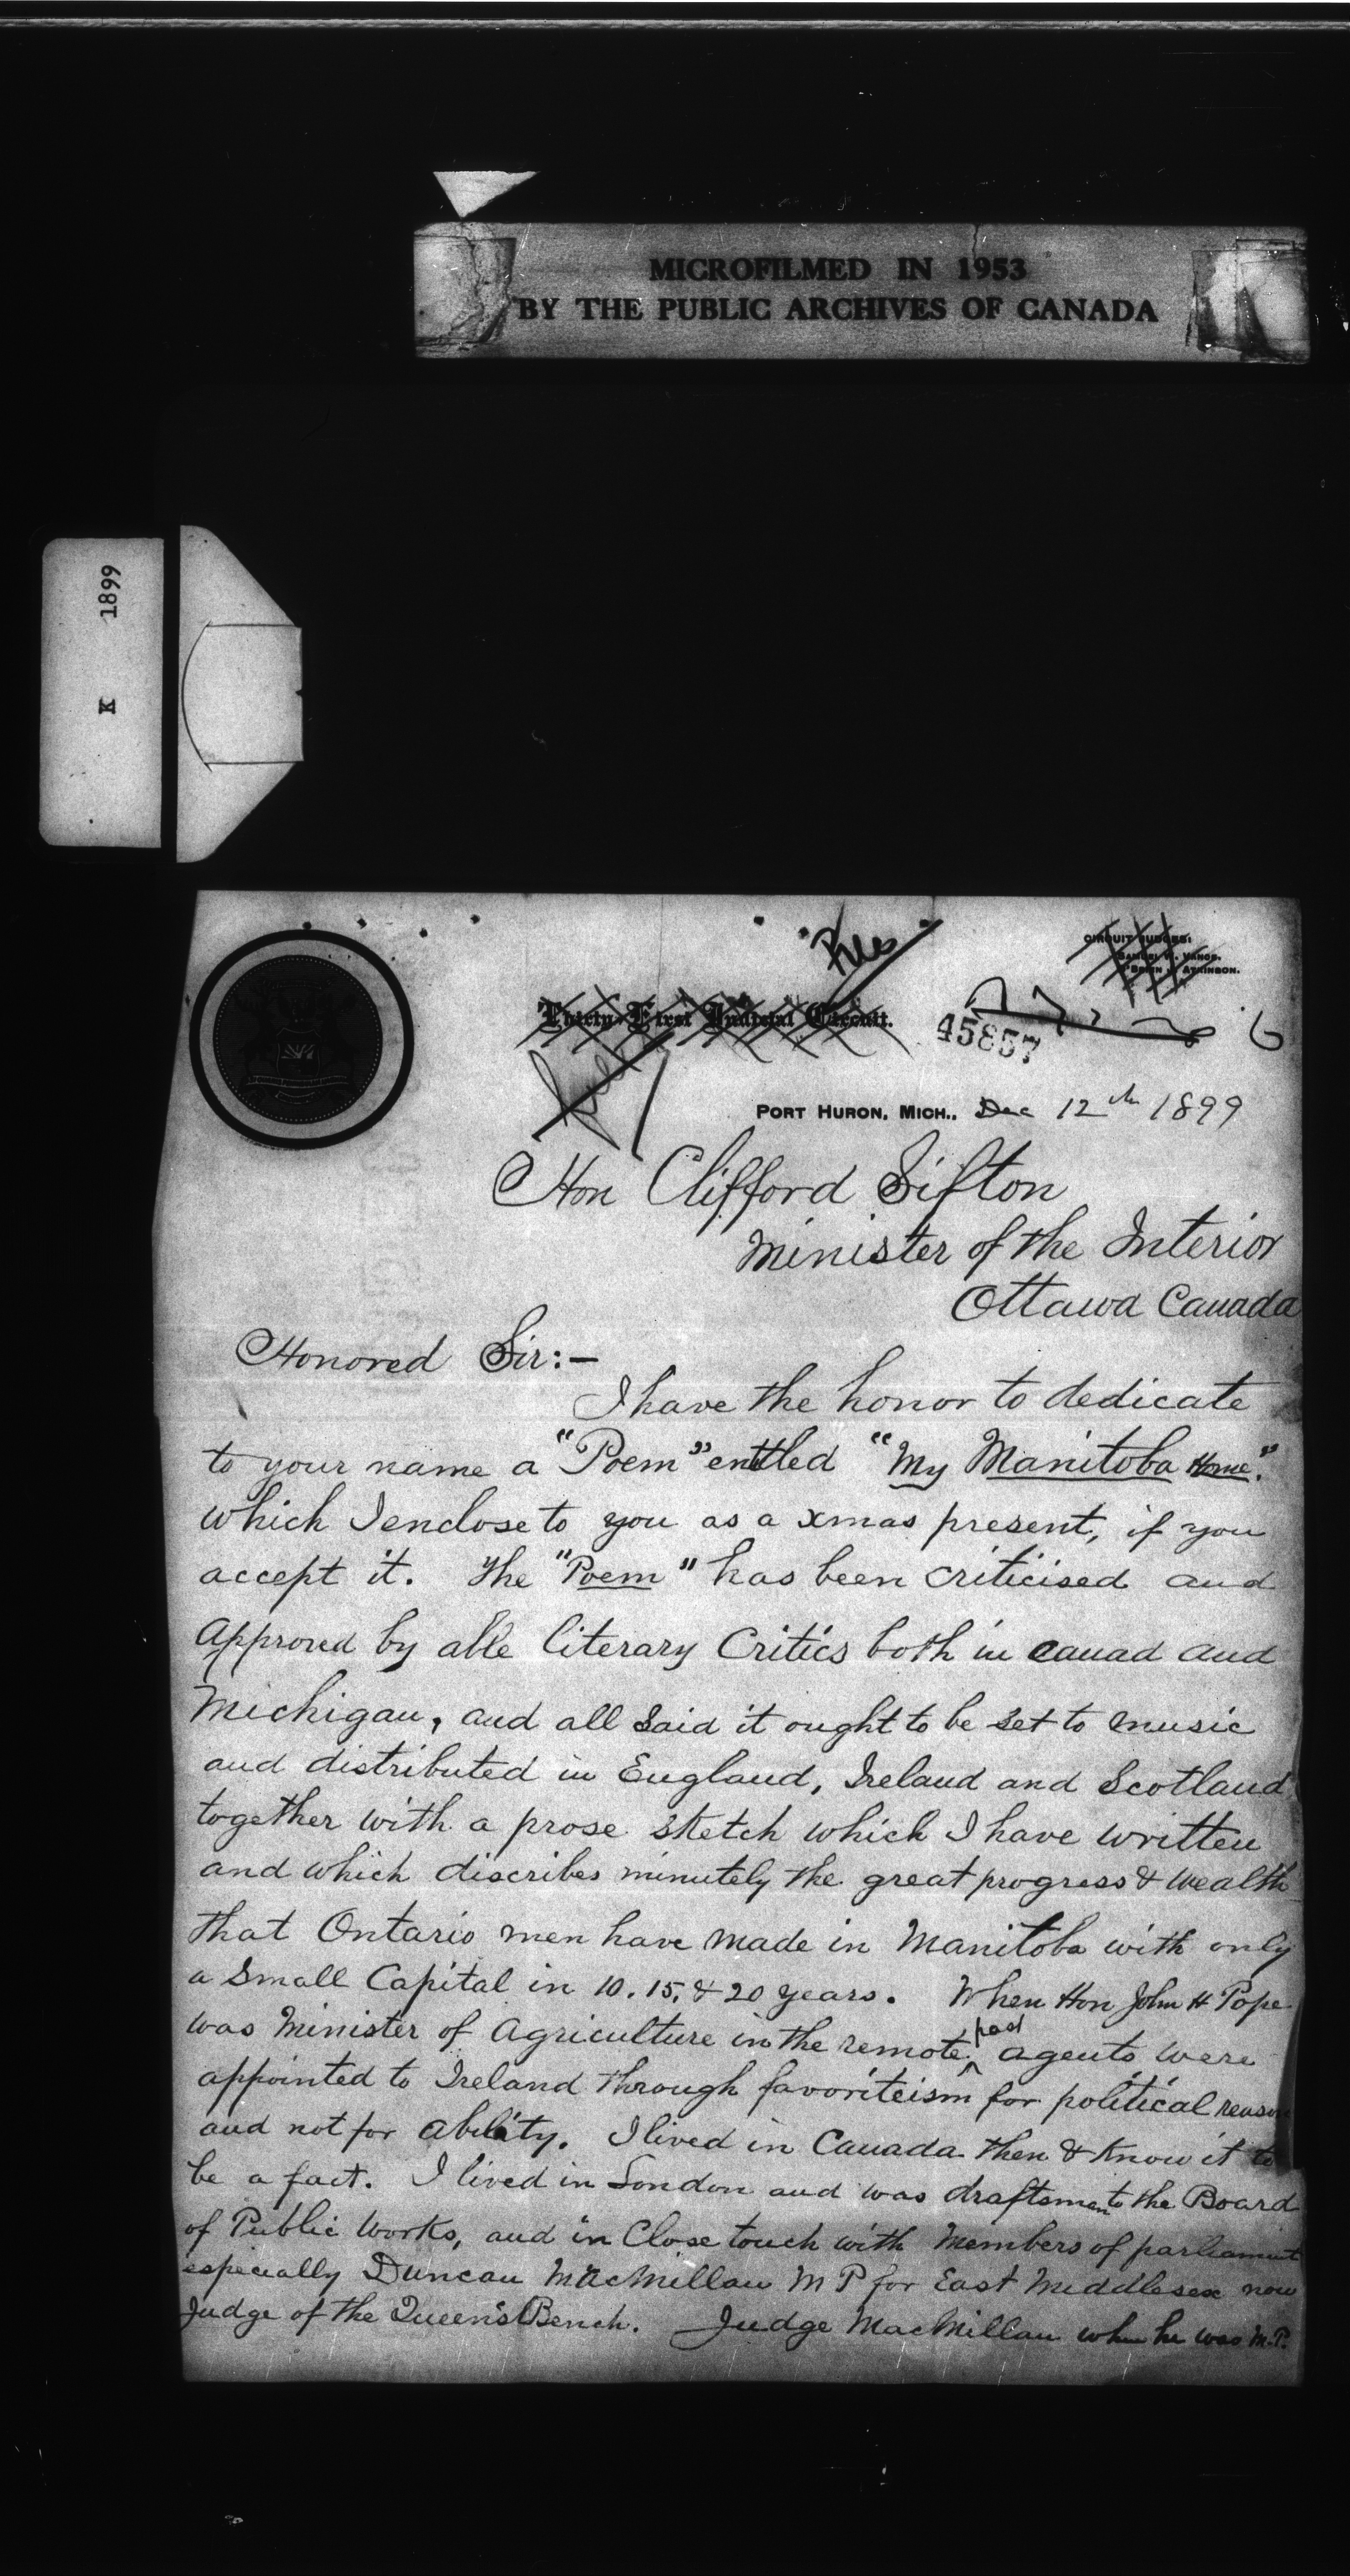 MICROFILMED IN 1953
BY THE PUBLIC ARCHIVES OF CANADA
K 1899
CIRCUIT JUDGES:
SAMUEL W. VANCE.
O'BRIEN J. ATKINSON.
Thirty-First Judicial Circuit.
45857
PORT HURON, MICH., Dec 12th 1899
Hon Clifford Sifton
Minister of the Interior
Ottawa Canada
Honored Sir:-
I have the honor to dedicate
to your name a "Poem" enttled "My Manitoba Home."
which I enclose to you as a xmas present, if you
accept it. The "Poem" has been criticised and
approved by able literary Critics both in canad and
Michigan, and all said it ought to be set to music
and distributed in England, Ireland and Scotland
together with a prose sketch which I have written
and which discribes minutely the great progress & wealth
that Ontario men have made in Manitoba with only
a small Capital in 10. 15. & 20 years. When Hon John H Pope
was Minister of Agriculture in the remote past agents were
appointed to Ireland through favoriteism for political reason
and not for ability. I lived in Canada then & know it to
be a fact. I lived in London and was draftsman to the Board
of Public Works, and in Close touch with Members of parliament
especially Duncan MacMillan M P for East Middlesex now
Judge of the Queen's Bench. Judge MacMillan when he was M.P.